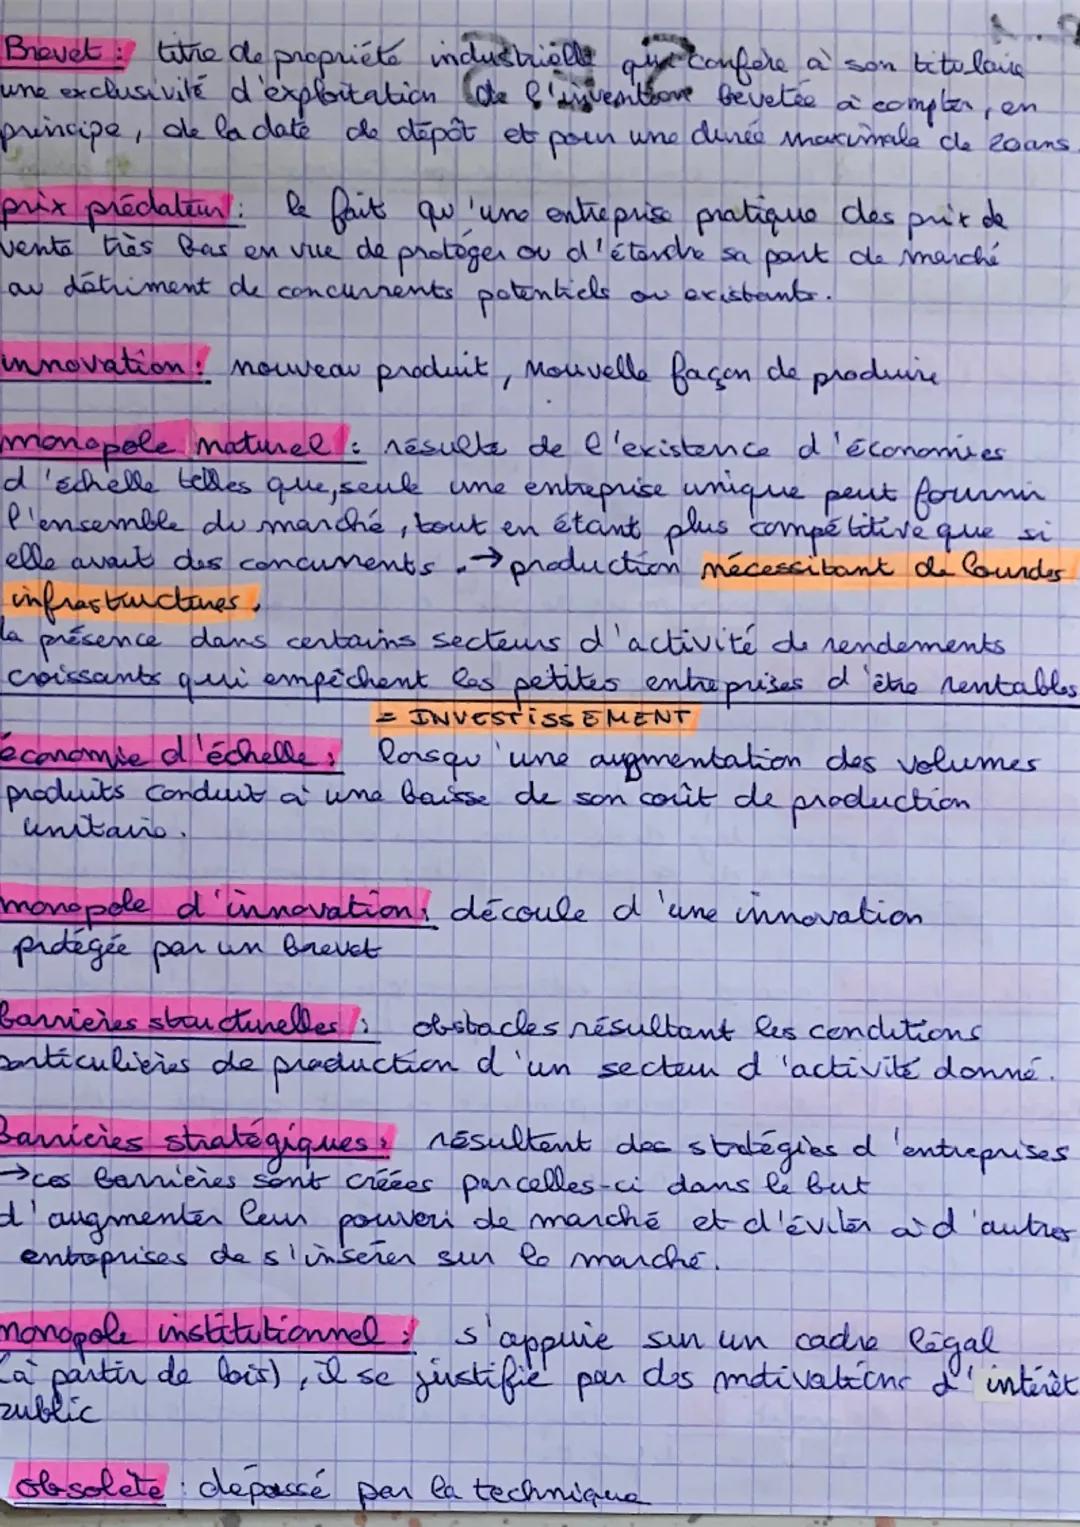 Brevet : titre de propriété industrielle qui confère à son titulaire
une exclusivité d'exploitation de l'invention bevetée à compter, en
principe, de la date de dépôt et pour une durée maximale de 20ans.
prix prédateur : le fait qu'une entreprise pratique des prix de
vente très bas en vue de protéger ou d'étendre sa part de marché
au détriment de concurrents potentiels ou existants.
innovation : nouveau produit, nouvelle façon de produire
monopole naturel : résulte de l'existence d'économies
d'échelle telles que, seule une entreprise unique peut fournir
l'ensemble du marché, tout en étant plus compétitive que si
elle avait des concurrents. → production nécessitant de lourdes
infrastructures.
la présence dans certains secteurs d'activité de rendements
croissants qui empêchent les petites entreprises d'être rentables
= INVESTISSEMENT
économie d'échelle : lorsqu'une augmentation des volumes
produits conduit à une baisse de son coût de production
unitaire.
monopole d'innovation : découle d'une innovation
protégée par un brevet
barrières structurelles : obstacles résultant les conditions
particulières de production d'un secteur d'activité donné.
Barrières stratégiques : résultent des stratégies d'entreprises
→ ces barrières sont créées par celles-ci dans le but
d'augmenter leur pouvoir de marché et d'éviter à d'autres
entreprises de s'insérer sur le marché.
monopole institutionnel : s'appuie sur un cadre légal
(à partir de lois), il se justifie par des motivations d'intérêt
public
obsolète : dépassé par la technique